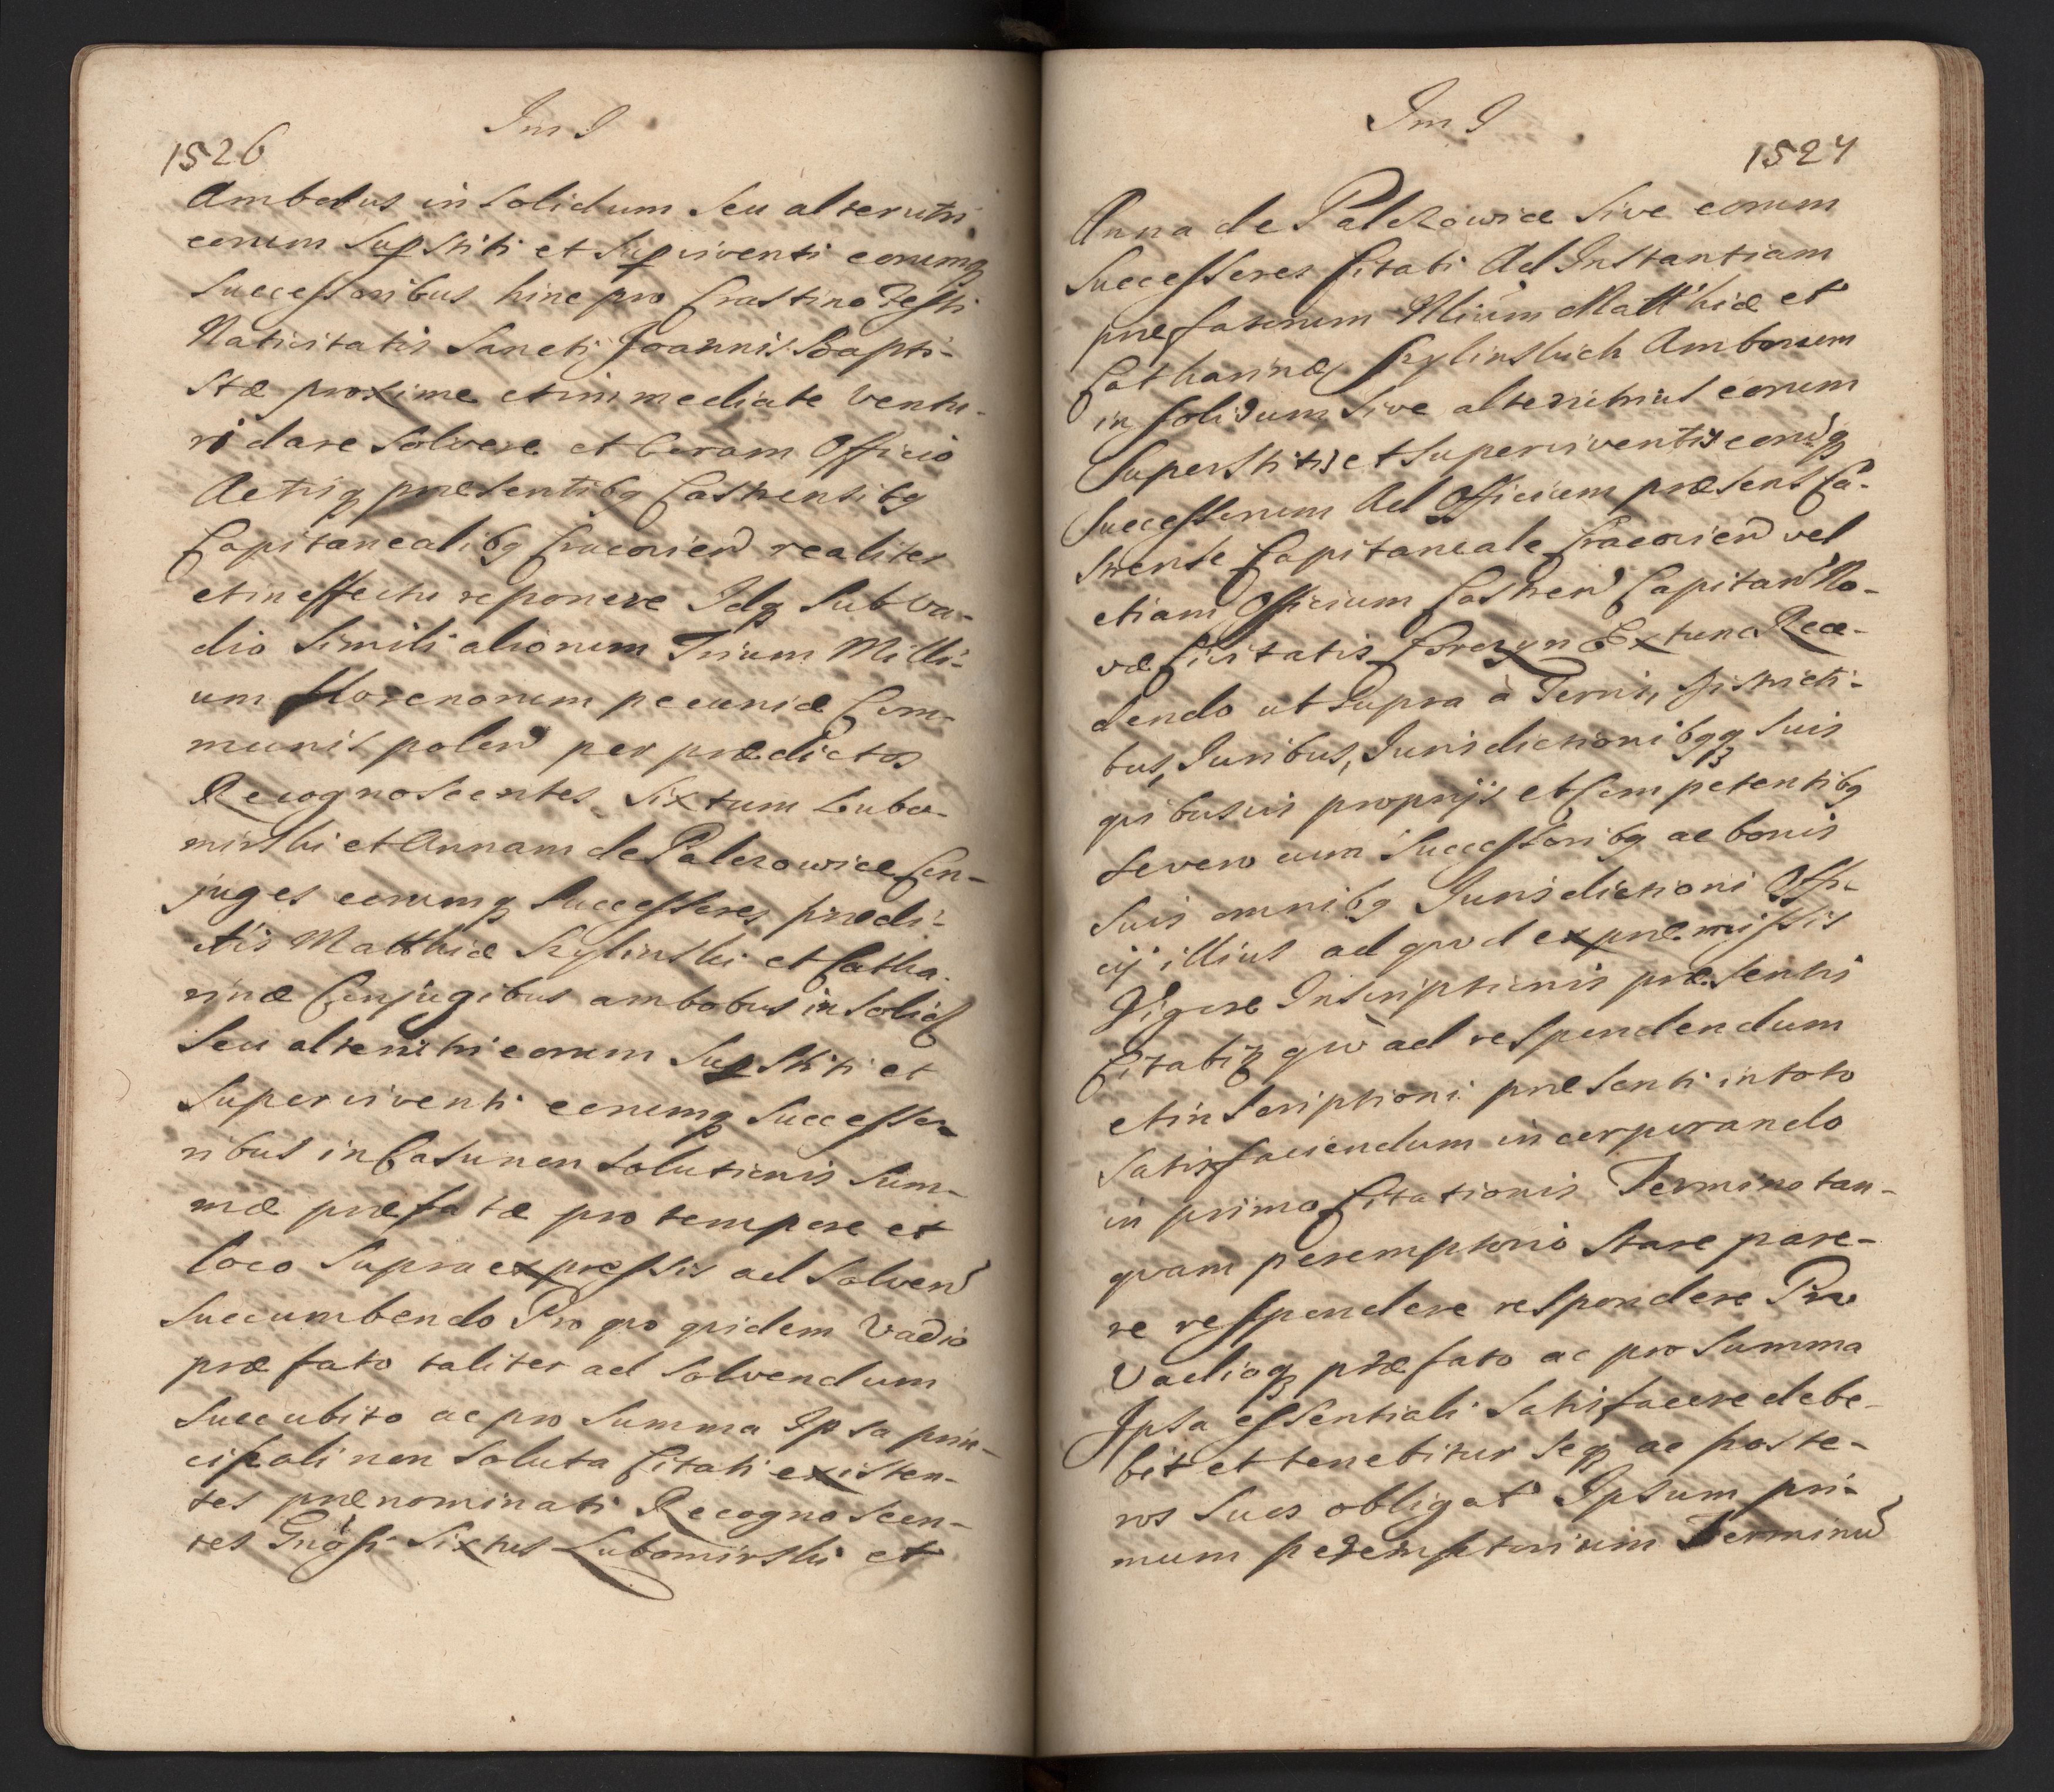 Im I
1526
Ambobus in Solidum Seu alterutri
eorum Supstiti et Supviventi eorumq
Successoribus hinc pro Crastino Festi
Nativitatis Sancti Joannis Bapti-
stæ proxime et immediate Ventu-
ri dare Solvere et Coram Officio
Actisq præsentibq Castrensibq
Capitanealibq Cracovien realiter
et in effectu reponere Idq Sub Va-
dio Simili aliorum Trium Milli-
um florenorum pecuniæ Com-
munis polen per prædictos
Recognoscentes Sixtum Lubo-
mirski et Annam de Palczowice Con-
juges eorumq Successores prædi-
ctis Matthiæ Szylinski et Catha-
rinæ Conjugibus ambobus in Solid
Seu alterutri eorum Supstiti et
Superviventi eorumq Successo-
ribus in Casu non Solutionis Sum-
mæ præfatæ pro tempore et
loco Supra expressis ad Solven
Succumbendo Pro quo quidem Vadio
præfato taliter ad Solvendum
Succubito ac pro Summa Ipsa prin-
cipali non Soluta Citati existen-
tes prænominati Recognoscen-
tes Gnosi Sixtus Lubomirski et
Im I
1527
Anna de Palczowice Sive eorum
Successores Citati Ad Instantiam
præfatorum Matthiæ et
Catharinæ Szylinskich Amborum
in Solidum Sive alterutrius eorum
Superstitis et Superviventis eorūq
Successorum Ad Officium præsens Ca-
strense Capitaneale Cracovien vel
etiam Officium Castren Capitan No-
væ Civitatis Korczyn Extunc Rece-
dendo ut Supra a Terris, Districti-
bus, Juribus, Jurisdictionibqq Suis
quibusvis proprijs et Competentibq
Se vero cum Successoribq ac bonis
Suis omnibq Jurisdictioni Offi-
cij illius ad quod ex præmissis
Vigore Inscriptionis præsentis
Citatiq quò ad respondendum
et inscriptioni præsenti in toto
Satisfaciendum incorporando
in primo Citationis Termino tan-
quam peremptorio Stare pare-
re respondere respondere Pro
Vadioq præfato ac pro Summa
Ipsa essentiali Satisfacere debe-
bit et tenebitur Seq ac poste-
ros Suos obligat Ipsum pri-
mum peremptorium Terminū